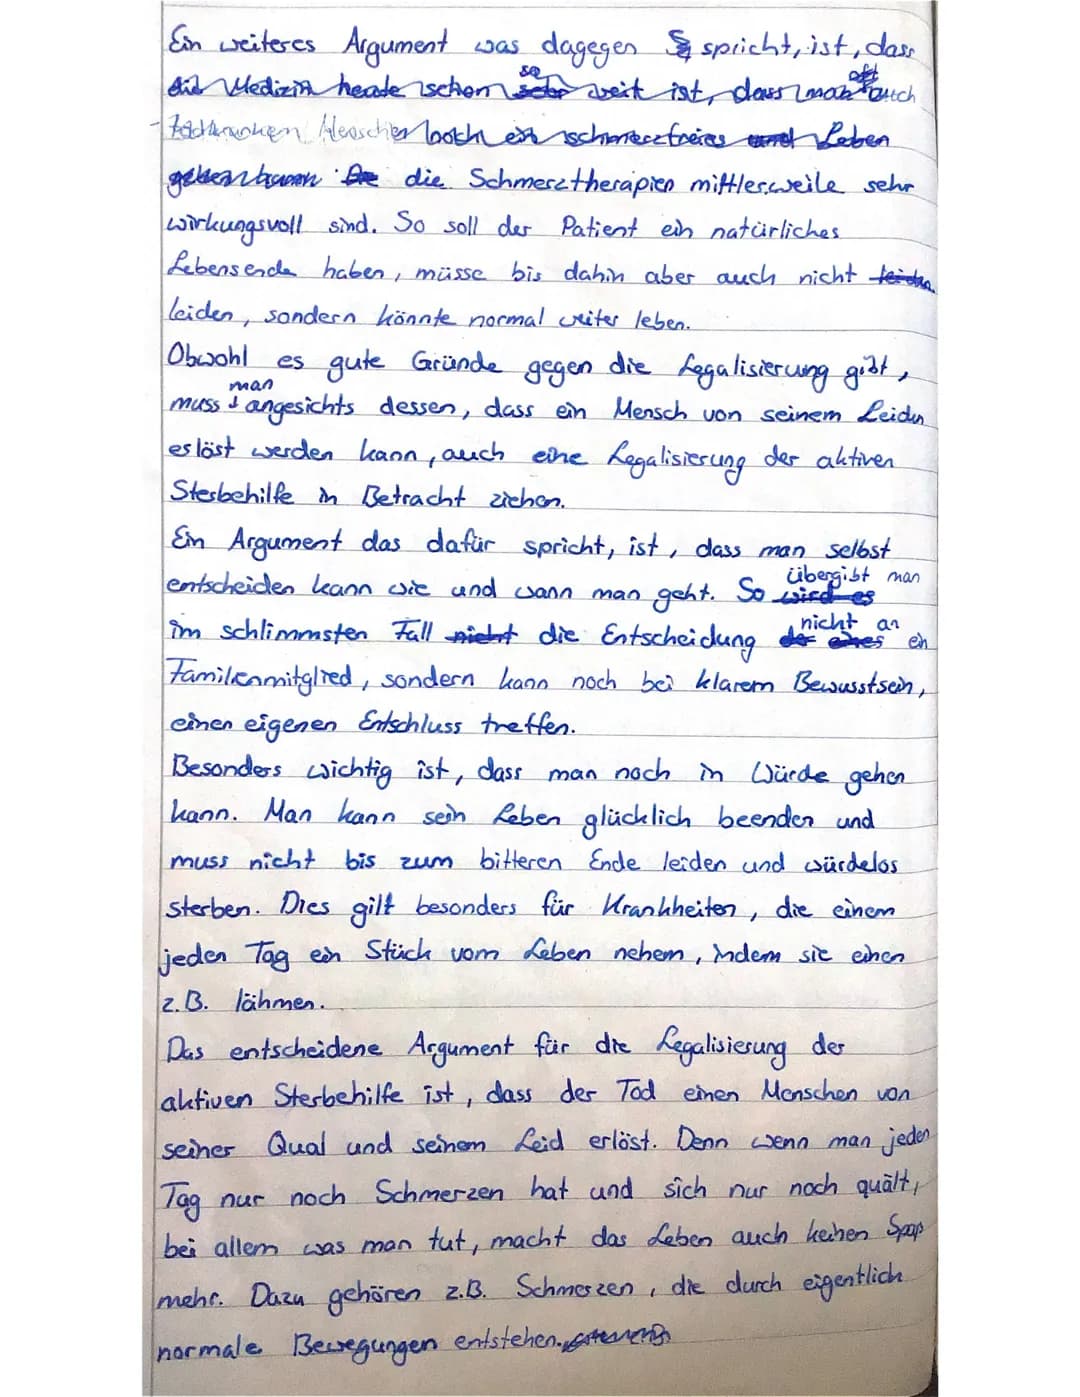 Ein weiteres Argument was dagegen spricht, ist, dass
so oft
die Medizin heute schon sehr weit ist, dass man auch
Menschen noch ein schmerzfreies und Leben
geben kann die Schmerztherapien mittlerweile sehr
wirkungsvoll sind. So soll der Patient ein natürliches
Lebensende haben, müsse bis dahin aber auch nicht leiden
leiden, sondern könnte normal weiter leben.
Obwohl es gute Gründe gegen die Legalisierung gibt,
man
muss angesichts dessen, dass ein Mensch von seinem Leiden
erlöst werden kann, auch eine Legalisierung der aktiven
Sterbehilfe in Betracht ziehen.
Ein Argument das dafür spricht, ist, dass man selbst
übergibt man
entscheiden kann wie und wann man geht. So wird es
nicht an
im schlimmsten Fall nicht die Entscheidung ein
Familienmitglied, sondern kann noch bei klarem Bewusstsein,
einen eigenen Entschluss treffen.
Besonders wichtig ist, dass man noch in Würde gehen
kann. Man kann sein Leben glücklich beenden und
muss nicht bis zum bitteren Ende leiden und würdelos
sterben. Dies gilt besonders für Krankheiten, die einem
jeden Tag ein Stück vom Leben nehem, indem sie einen
z.B. lähmen.
Das entscheidene Argument für die Legalisierung der
aktiven Sterbehilfe ist, dass der Tod einen Menschen von
seiner Qual und seinem Leid erlöst. Denn wenn man jeden
Tag nur noch Schmerzen hat und sich nur noch quält,
bei allem was man tut, macht das Leben auch keinen Spaß
mehr. Dazu gehören z.B. Schmerzen, die durch eigentlich
normale Bewegungen entstehen.